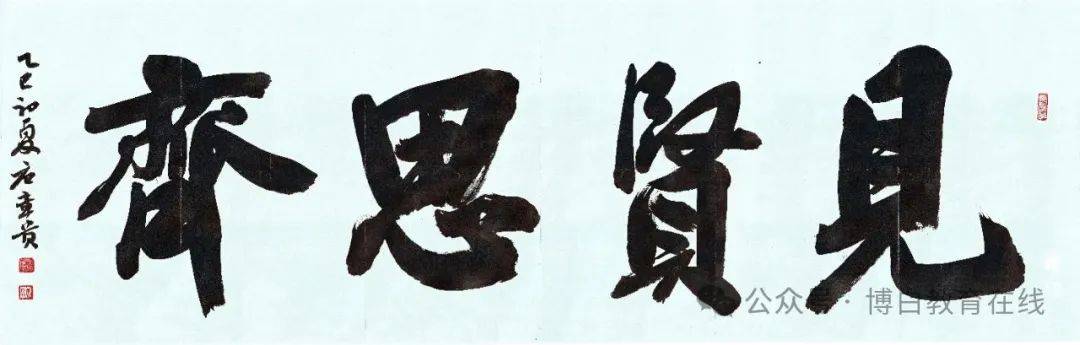 見賢思齊
乙巳初夏
公众号·博白教育在线